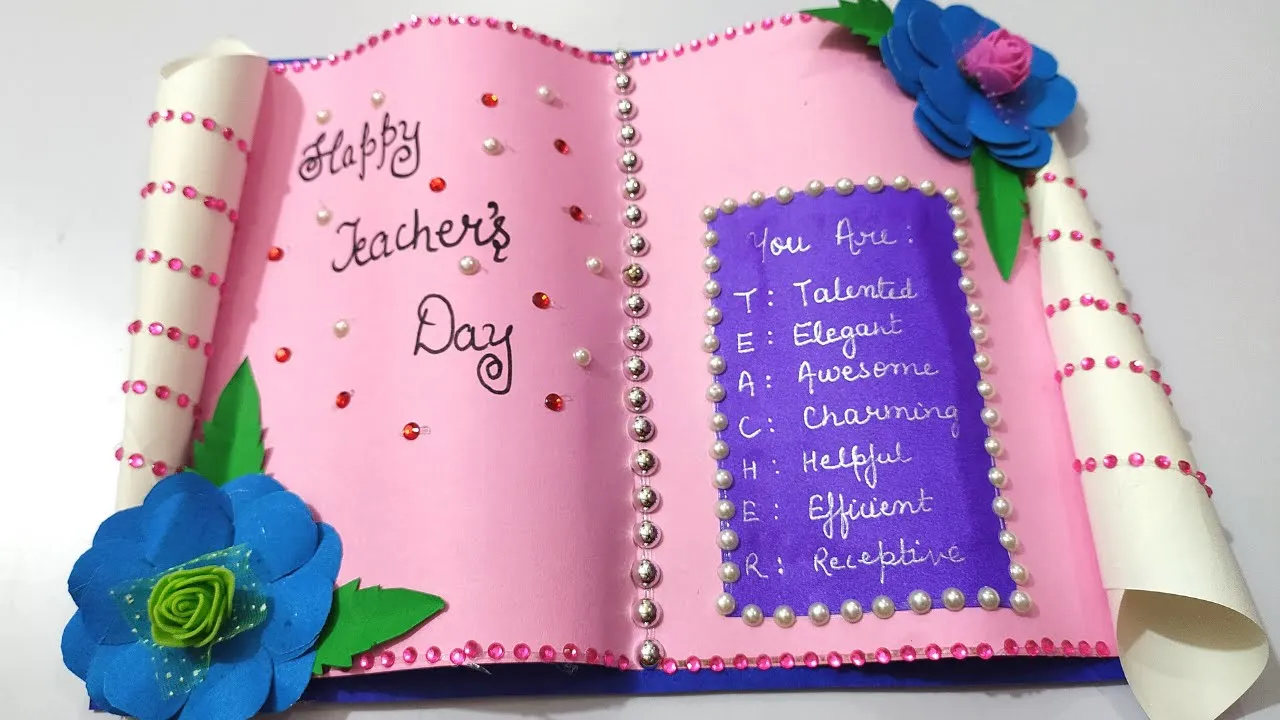 Happy
Teacher's
Day
You Are :
T : Talented
E : Elegant
A : Awesome
C : Charming
H : Helpful
E : Efficient
R : Receptive